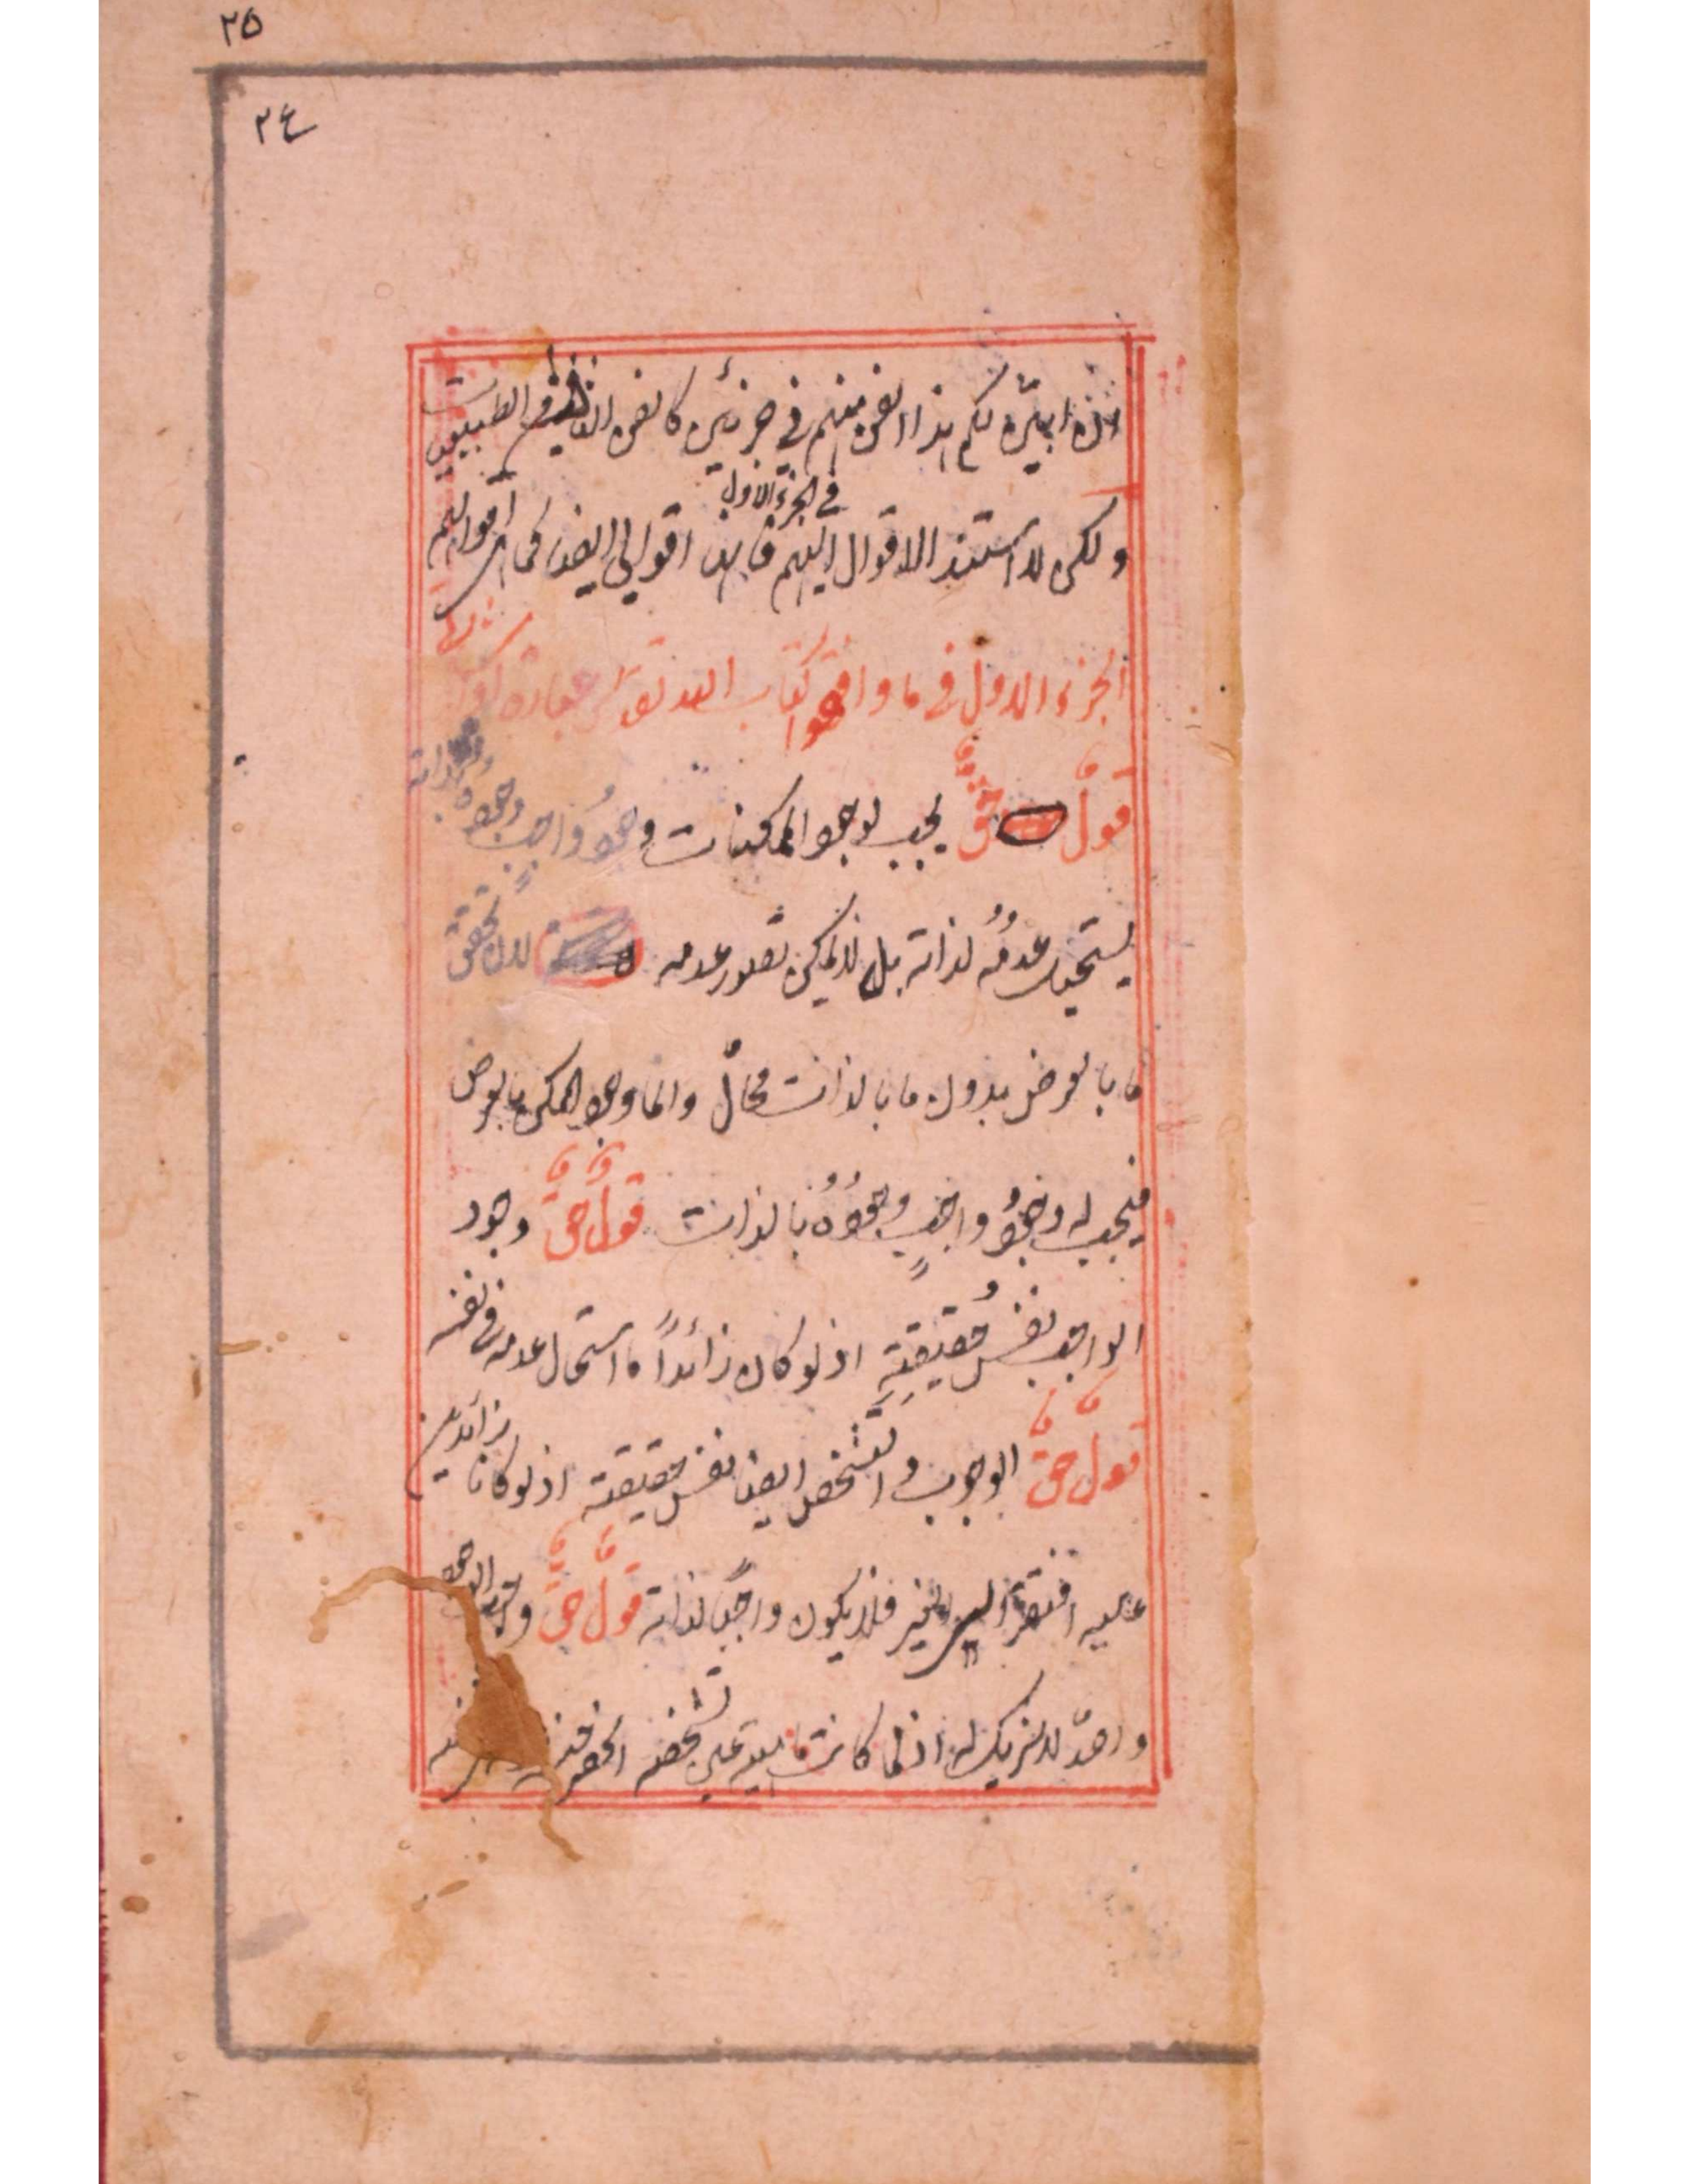 ٢٥
٢٤
ابيّن لكم هذا الفن منهم في جزئين كالفن في الطبيعيات
في الجزء الاول
ولكن لا استند الاقوال اليهم فانها اقوالي ايضا كما اقوالهم
الجزء الاول في ما وافقوا كتاب الله تعالى
قولٌ حقٌّ يجب لوجود الممكنات وجودُ واجبٍ وجوده لذاته
يستحيل عدمُه لذاته بل لا يمكن تصور عدمه لان تحقق
ما بالعرض بدون ما بالذات محالٌ وانما وجود الممكن بالعرض
فيجب له وجودُ واجبٍ وجودُه بالذات قولٌ حقٌّ وجود
الواجب نفسُ حقيقتِهِ اذ لو كان زائداً ما استحال عدمه في نفسه
قولٌ حقٌّ الوجوب والتشخص ايضا نفس حقيقته اذ لو كانا زائدين
عليه افتقر الى الغير فلا يكون واجباً لذاته قولٌ حقٌّ الوجود
واحدٌ لا شريك له اذ لما كانت ماهيته عين تشخصه انحصر